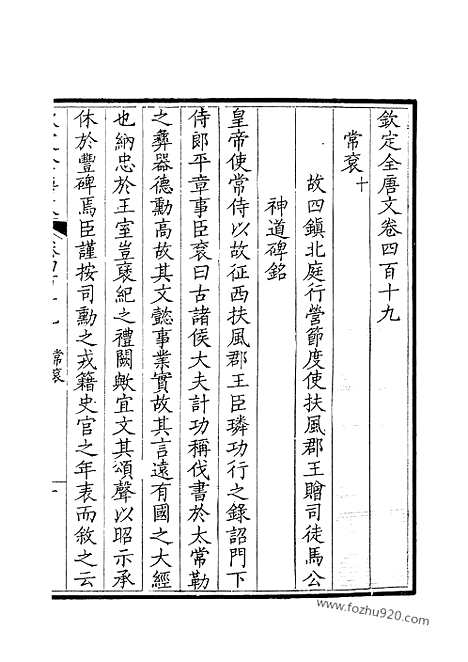 欽定全唐文卷四百十九
常袞十
故四鎮北庭行營節度使扶風郡王贈司徒馬公
神道碑銘
皇帝使常侍以故征西扶風郡王臣璘功行之錄詔門下
侍郎平章事臣袞曰古諸侯大夫計功稱伐書於太常勒
之彝器德勳高故其文懿事業實故其言遠有國之大經
也納忠於王室豈褒紀之禮闕歟宜文其頌聲以昭示承
休於豐碑焉臣謹按司勳之戎籍史官之年表而敘之云
常袞
一
www.fozhu920.com